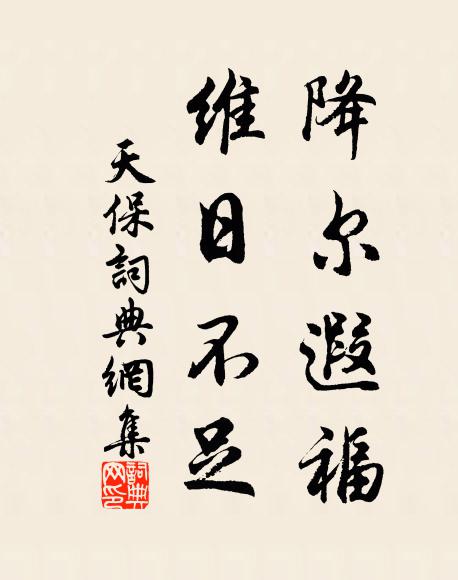 降尔遐福
維日不足
天保詞典網集
詞典网印